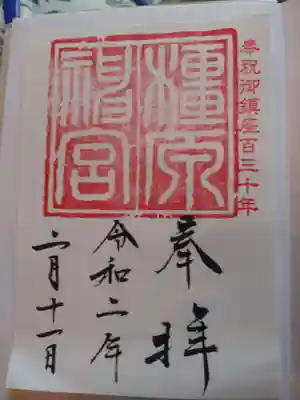 奉祝御鎮座百三十年
橿原
神宮
奉拝
令和二年
二月十一日